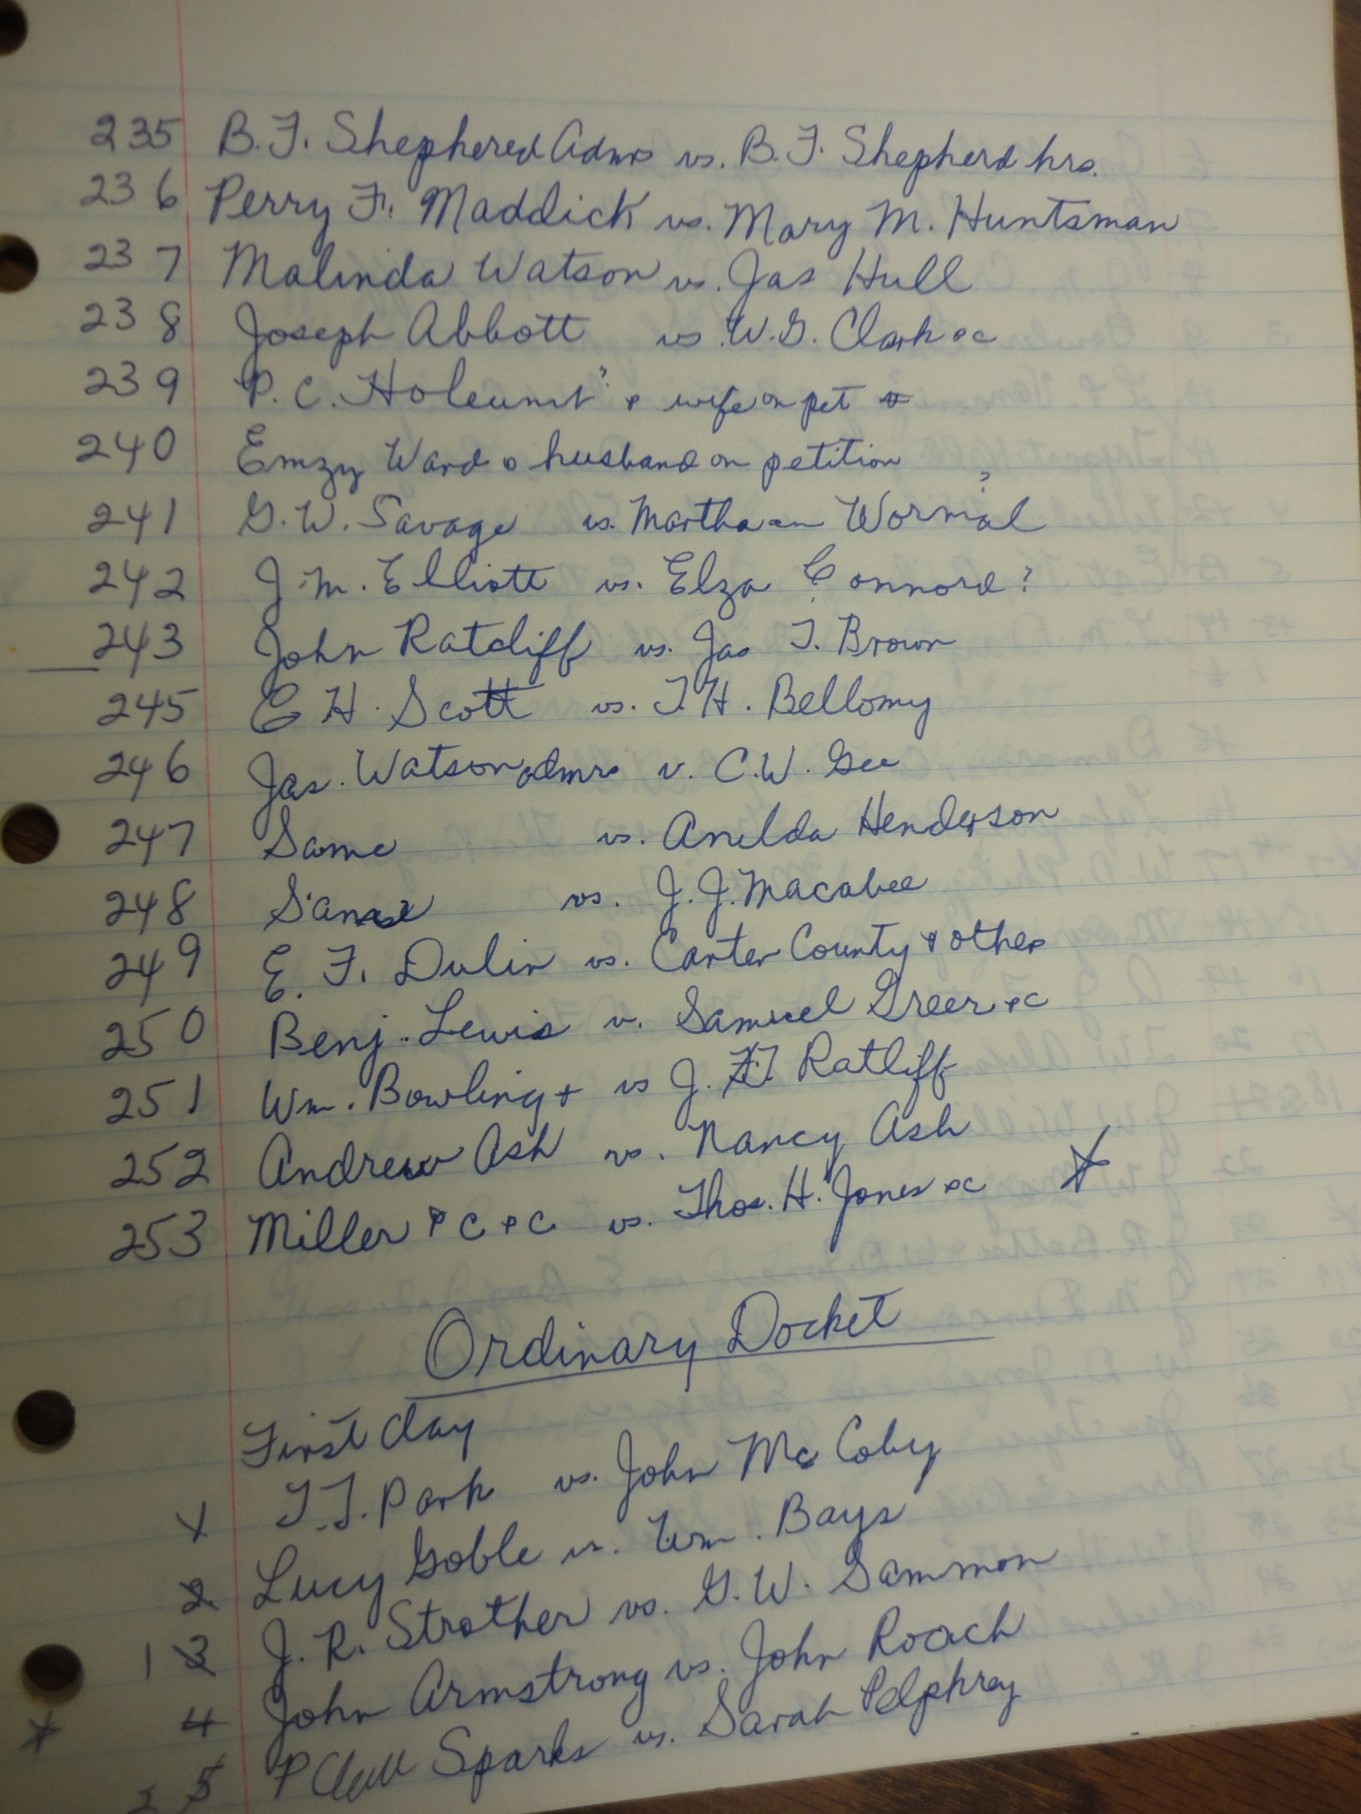 235 B.F. Shephered Admrs vs. B.F. Shepherd hrs.
236 Perry F. Maddick vs. Mary M. Huntsman
237 Malinda Watson vs. Jas Hull
238 Joseph Abbott vs W.G. Clark &c
239 P.C. Holcumb? & wife on pet
240 Emzy Ward & husband on petition
241 G.W. Savage vs. Martha an Wormal?
242 J.M. Elliott vs. Elza Connord?
243 John Ratcliff vs. Jas T. Brown
245 E H. Scott vs. T.H. Bellomy
246 Jas. Watson admrs v. C.W. Gee
247 Same vs. Anelda Henderson
248 Same vs. J.J. Macabee
249 E. F. Dulin vs. Carter County & other
250 Benj. Lewis v. Samuel Greer &c
251 Wm. Bowling + vs J. F. Ratliff
252 Andrew Ash vs. Nancy Ash
253 Miller & C & C vs. Thos. H. Jones &c
Ordinary Docket
First day
1 T.T. Park vs. John McCoby
2 Lucy Goble vs. Wm. Bays
1 3 J.R. Strother vs. G.W. Sammon
4 John Armstrong vs. John Roach
2 5 P Sparks vs. Sarah Pelphrey